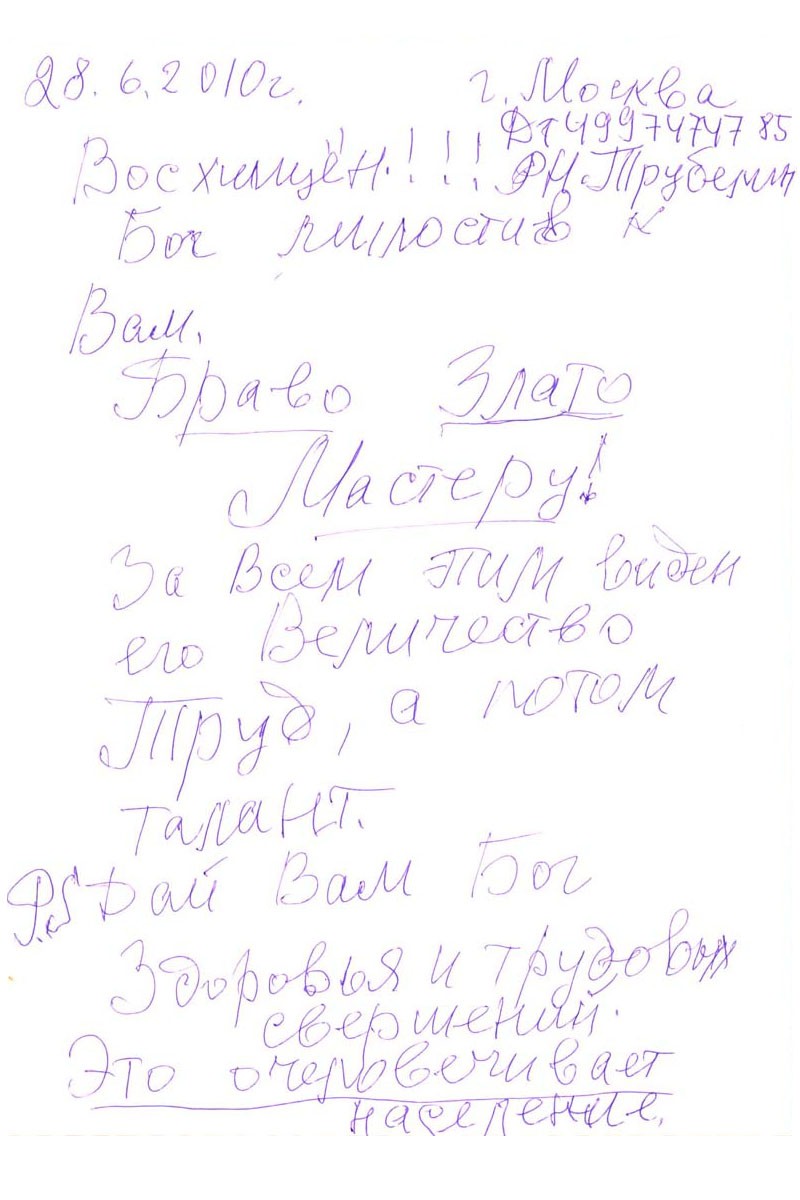 28.6.2010г. г. Москва
Дт 4997474785
Восхищён!!! РН. Трубецин
Бог милостив к
Вам.
Браво Злато
Мастеру!
За Всем этим виден
его Величество
Труд, а потом
талант.
P.S Дай Вам Бог
Здоровья и трудовых
свершений.
Это очеловечивает
население.